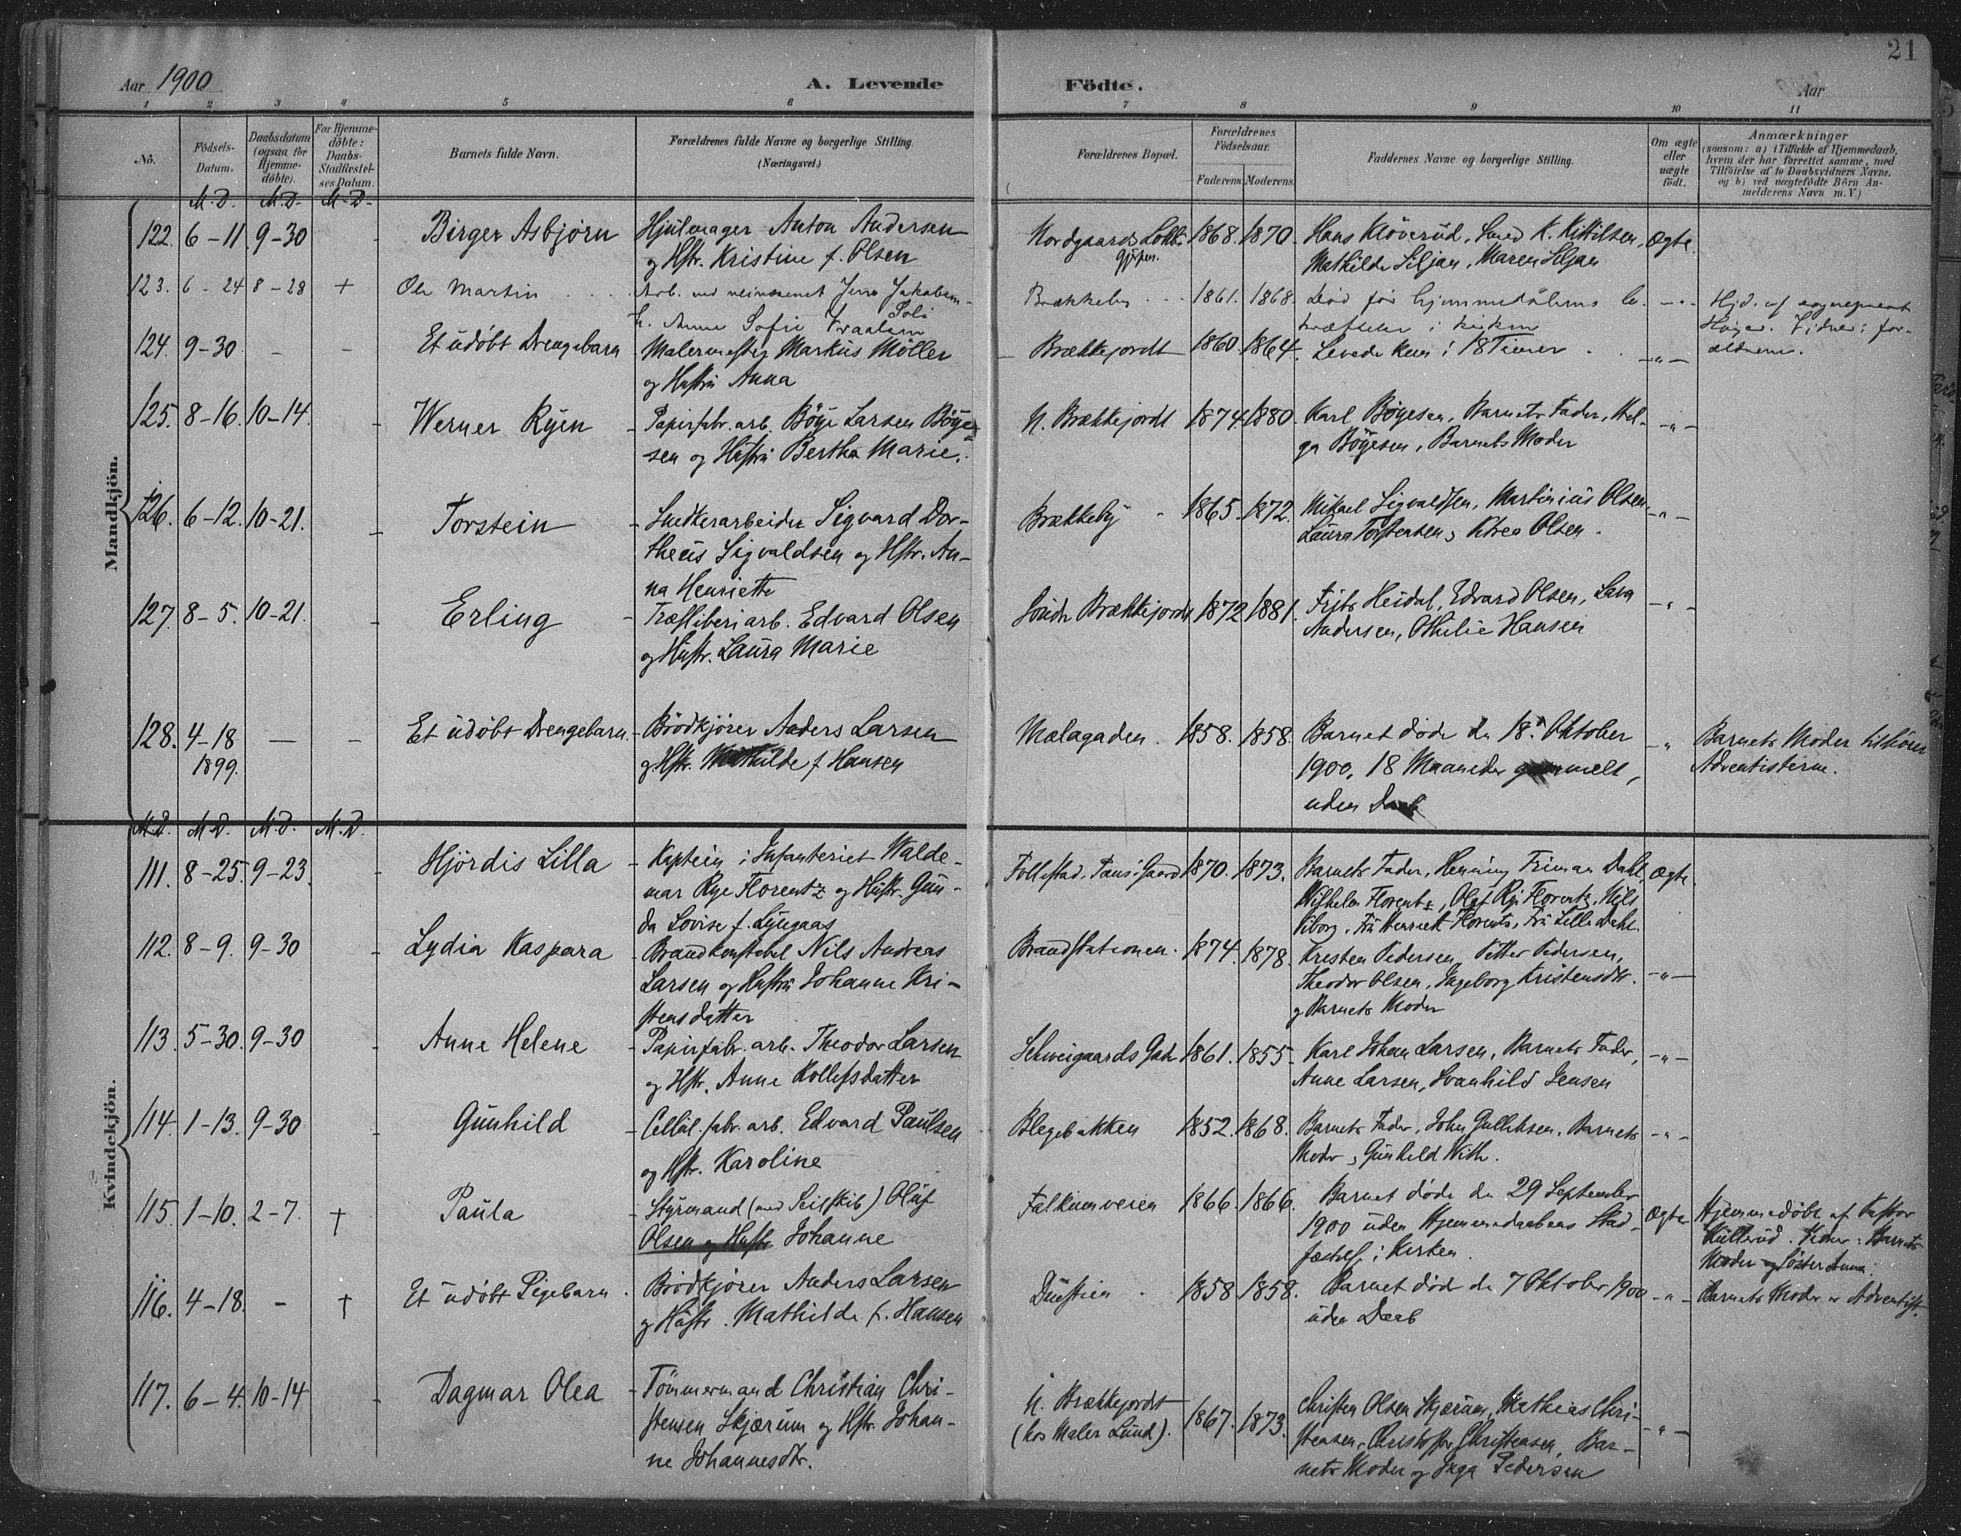 21
Aar 1900
A. Levende Födte.
Aar
1 2 3 4 5 6 7 8 9 10 11
No.
Födsels-Datum.
Daabsdatum (ogsaa for Hjemmedöbte).
For Hjemmedöbte: Daabs-Stadfæstelses Datum.
Barnets fulde Navn.
Forældrenes fulde Navne og borgerlige Stilling. (Næringsvei.)
Forældrenes Bopæl.
Forældrenes Födselsaar.
Faderens Moderens
Faddernes Navne og borgerlige Stilling.
Om ægte eller uægte födt.
Anmærkninger
(saasom: a) i Tilfælde af Hjemmedaab, hvem der har forrettet samme, med Tilföielse af to Daabsvidners Navne, og b) ved uægtefödte Börn Anmelderens Navn m. V.)
M. D. M. D. M. D.
Mandkjön.
122. 6-11 9-30 - Birger Asbjørn Hjulmager Anton Andersen Nordgaards 1868. 1870. Hans Kløverud, Smed K. Kittilsen, Ægte
og Hstr. Kristine f. Olsen Mathilde Siljan, Maren Siljan
123. 6-24 8-28 + Ole Martin Arb. Jens Jakobsen Brækkeby 1861. 1868. Død før hjemmedåbens be- -"- Hjd. af sogneprest
Anne Sofie kræftelse i kirken Høyer. Vidner: for-
124. 9-30 - - Et udøbt Drengebarn Malermester Markus Møller Brækkejordet 1860. 1864. Levede kun i 18 Timer -"- ældrene.
og Hustru Anna
125. 8-16. 10-14. - Werner Ryen - Papirfabr. arb. Böye Larsen Böye- N. Brækkejordt 1874 1880. Karl Böyesen, Barnets Fader, Hel- -"-
sen og Hustru Bertha Marie. ga Böyesen, Barnets Moder
126. 6-12. 10-21. - Torstein - Snedkerarbeider Sigvard Dor- Brækkeby 1865. 1872. Mikael Sigvaldsen, Martinius Olsen, -"-
theus Sigvaldsen og Hstr. An- Laura Torstensen, Olsen.
na Henriette
127. 8-5. 10-21. - Erling - Træsliberiarb. Edvard Olsen Söndr Brækkejordt 1872 1881. Heidal, Edvard Olsen, Lava -"-
og Hustr. Laura Marie Andersen, Othilie Hansen
128. 4-18 - - Et udøbt Drengebarn. - Brödkjører Anders Larsen Mælagaden. 1858. 1858. Barnet døde den 18. Oktober -" Barnets Moder tilhører
1899. og Hstr. Mathilde f. Hansen 1900, 18 Maaneder gammelt, Adventisterne.
uden Daab
M. D. M. D. M. D. M. D.
Kvindekjön.
111. 8-25. 9-23. Hjördis Lilla - Kaptein i Infanteriet Walde- Follestad. 1870. 1873. Barnets Fader, Henning Friman Dahl, Ægte.
mar Rye Florentz og Hustr. Gun- Wilhelm Florentz, Olaf Rye Florentz, Nils
da Lovise f. Lyngaas Viborg, Frü Florentz, Frü Lilla Dahl.
112. 8-9. 9-30 - Lydia Kaspara - Brandkonstabel Nils Andreas Brandstationen. 1874. 1878. Kresten Pedersen, Petter Pedersen, -"-
Larsen og Hustru Johanne Kri- Theodor Olsen, Ingeborg Kristensdtr.
stensdatter og Barnets Moder
113. 5-30. 9-30 - Anne Helene - Papirfabr. arb. Theodor Larsen Schweigaards Gade 1861. 1855. Karl Johan Larsen, Barnets Fader, -"-
og Hstr. Anne Kollefsdatter Anne Larsen, Svanhild Jensen
114. 1-13. 9-30 - Gunhild - Cellul. fabr. arb. Edvard Paulsen Blegebakken 1852. 1868. Barnets Fader, John Gulliksen, Barnets -"-
og Hstr. Karoline Moder, Gunhild With.
115. 1-10. 2-7. † Paula - Styrmand (med Seilskib) Oluf Falkumveien 1866. 1866. Barnet døde den 29 September Ægte Hjemmedøbt af Pastor
Olsen og Hustr Johanne 1900 uden Hjemmedaabens Stad- Kullerud. Vidner: Barnets
fæstelse i Kirken. Moder og Söster Anna.
116. 4-18. - † Et udøbt Pigebarn. Brödkjører Anders Larsen 1858 1858. Barnet døde den 7 Oktober 1900 -"- Barnets Moder er Adventist.
og Hustr. Mathilde f. Hansen uden Daab
117. 6-4. 10-14 - Dagmar Olea - Tömmermand Christian Chri- N. Brækkejordt 1867. 1873. Christen Olsen Skjærum, Mathias Chri- -"-
stensen Skjærum og Hstr. Johan- (hos Maler Lund). stensen, Christoffer Christensen, Bar-
ne Johannesdtr. nets Moder og Inga Pedersen